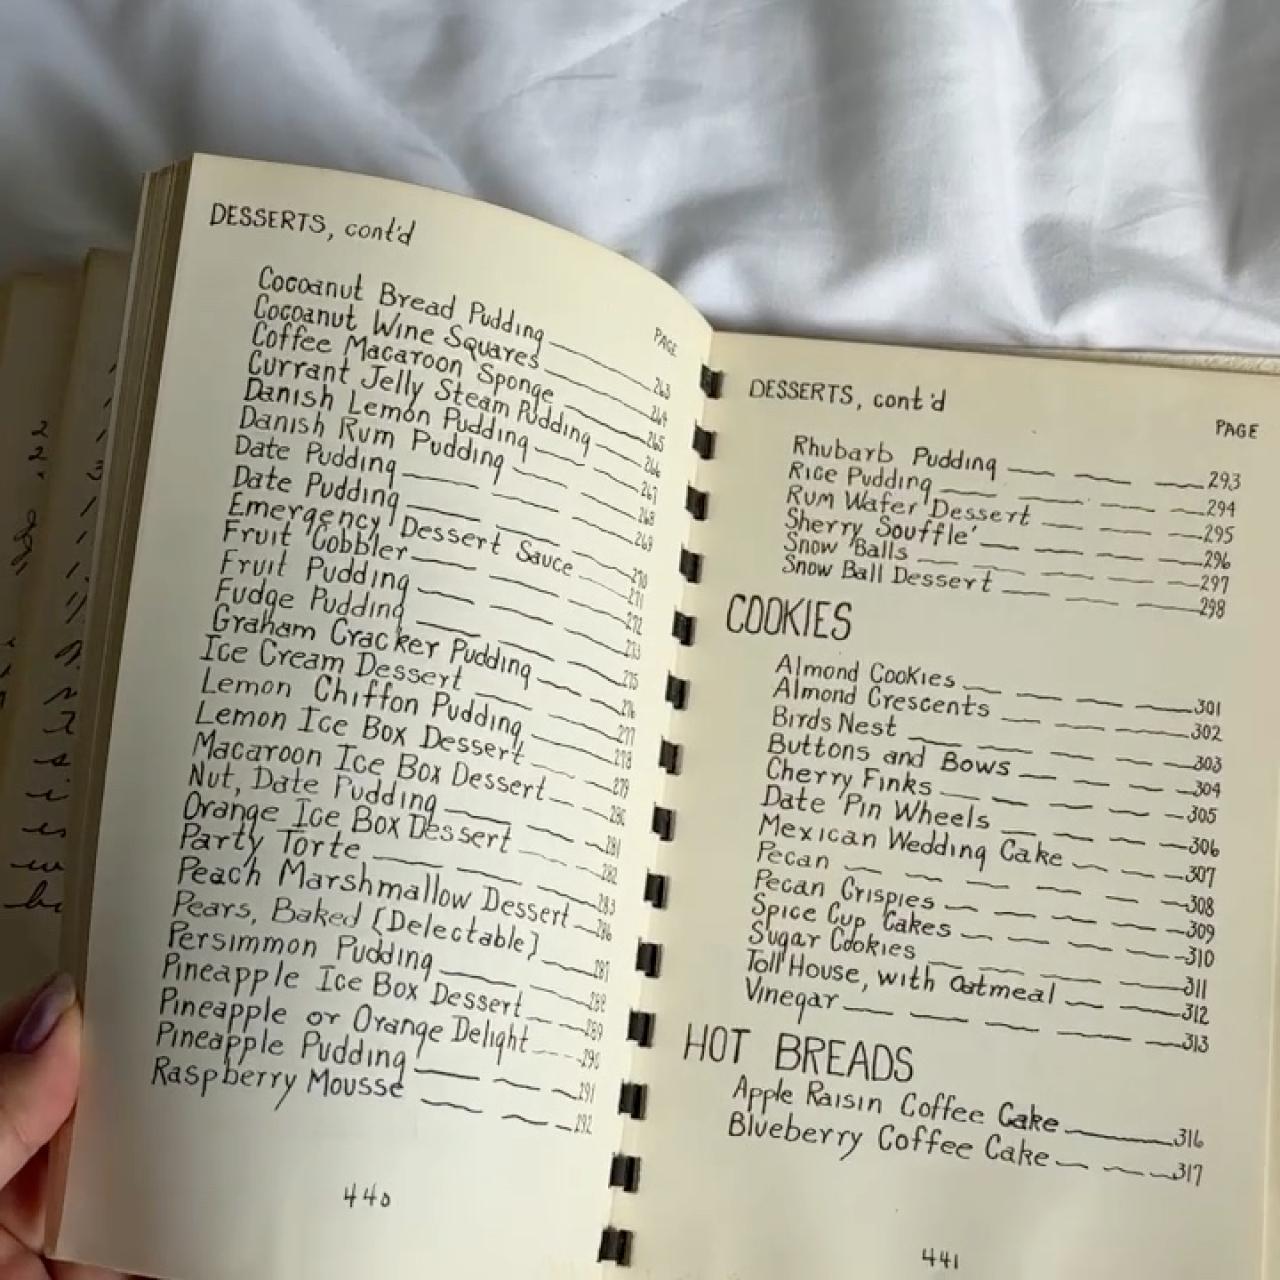 DESSERTS, cont'd
PAGE
Cocoanut Bread Pudding 263
Cocoanut Wine Squares 264
Coffee Macaroon Sponge 265
Currant Jelly Steam Pudding 266
Danish Lemon Pudding 267
Danish Rum Pudding 268
Date Pudding 269
Date Pudding 270
Emergency Dessert Sauce 271
Fruit Cobbler 272
Fruit Pudding 273
Fudge Pudding 275
Graham Cracker Pudding 276
Ice Cream Dessert 277
Lemon Chiffon Pudding 278
Lemon Ice Box Dessert 279
Macaroon Ice Box Dessert 280
Nut, Date Pudding 281
Orange Ice Box Dessert 282
Party Torte 283
Peach Marshmallow Dessert 286
Pears, Baked [Delectable] 287
Persimmon Pudding 288
Pineapple Ice Box Dessert 289
Pineapple or Orange Delight 290
Pineapple Pudding 291
Raspberry Mousse 292
440
DESSERTS, cont'd
PAGE
Rhubarb Pudding 293
Rice Pudding 294
Rum Wafer Dessert 295
Sherry Souffle' 296
Snow Balls 297
Snow Ball Dessert 298
COOKIES
Almond Cookies 301
Almond Crescents 302
Birds Nest 303
Buttons and Bows 304
Cherry Finks 305
Date Pin Wheels 306
Mexican Wedding Cake 307
Pecan 308
Pecan Crispies 309
Spice Cup Cakes 310
Sugar Cookies 311
Toll House, with Oatmeal 312
Vinegar 313
HOT BREADS
Apple Raisin Coffee Cake 316
Blueberry Coffee Cake 317
441